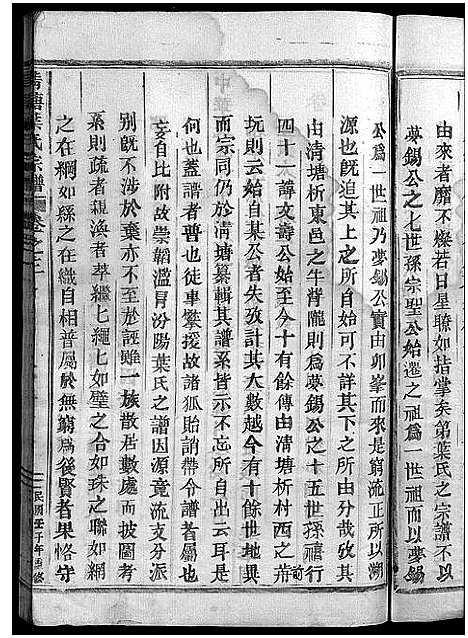 由來者靡不燦若日星瞭如指掌矣第葉氏之宗譜不以
夢錫公之七世孫宗聖公始遷之祖爲一世祖而以夢錫
公爲一世祖乃夢錫公實由卯峯而來是窮流正所以溯
源也旣追其上之所自始可不詳其下之所由分哉攷其
由清塘析東邑之牛背隴則爲夢錫公之十五世孫禧行
四十一諱文壽公始至今十有餘傳由清塘析村西之荷
坑則云始自某公者失攷計其人數越今有十餘世地異
而宗同仍於清塘纂輯其譜系皆示不忘所自出云耳是
何也蓋譜者普也徒事繁援故諸狐貽誚帶令譜者屬也
妄自比附故崇韜濫冒汾陽葉氏之譜因源竟流支分派
別旣不涉於棄亦不至於誣雖一族散居數處而披圖考
系則疏者親渙者萃繼七繩七如璧之合如珠之聯如網
之在綱如絲之在織自相普屬於無窮焉後賢者果恪守
清塘葉氏宗譜 卷之
民國壬子年重修